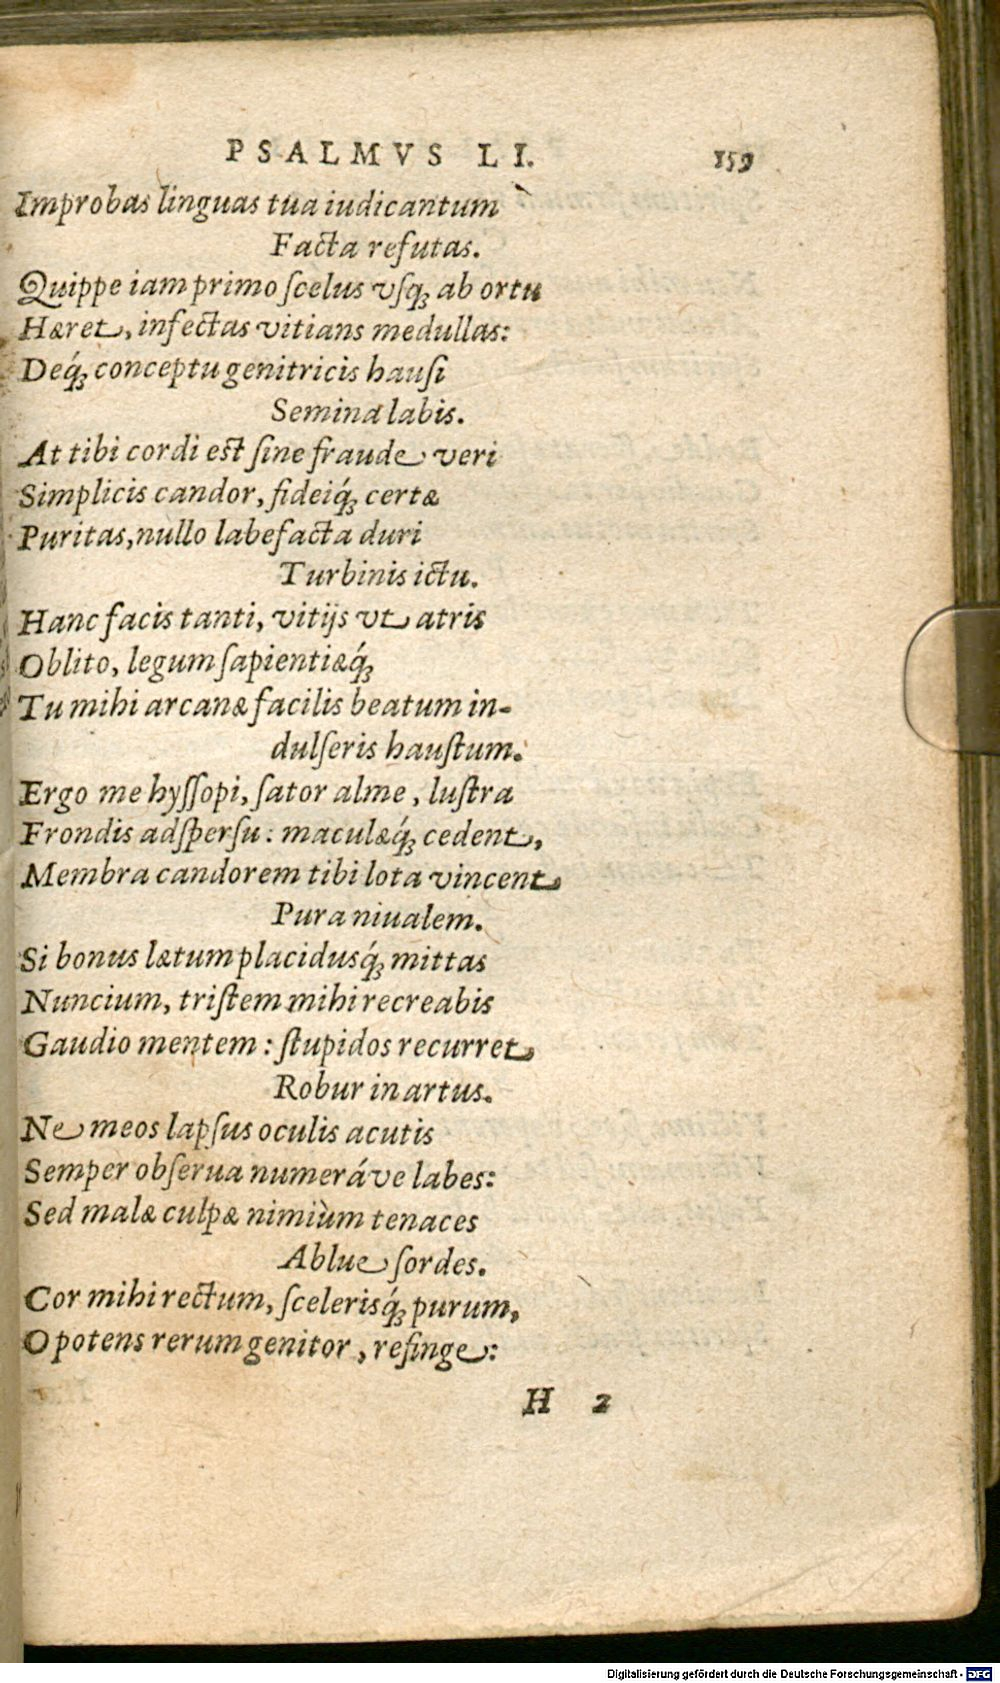 PSALMVS LI. 159
Improbas linguas tua iudicantum
Facta refutas.
Quippe iam primo ſcelus vſq; ab ortu
Hæret, infectas vitians medullas:
Deq́; conceptu genitricis hauſi
Semina labis.
At tibi cordi eſt ſine fraude veri
Simplicis candor, fideiq́; certæ
Puritas, nullo labefacta duri
Turbinis ictu.
Hanc facis tanti, vitijs vt atris
Oblito, legum ſapientiæq́;
Tu mihi arcanæ facilis beatum in-
dulſeris hauſtum.
Ergo me hyſſopi, ſator alme, luſtra
Frondis adſperſu: maculæq́; cedent,
Membra candorem tibi lota vincent
Pura niualem.
Si bonus lætum placidusq́; mittas
Nuncium, triſtem mihi recreabis
Gaudio mentem: ſtupidos recurret
Robur in artus.
Ne meos lapſus oculis acutis
Semper obſerua numeráve labes:
Sed malæ culpæ nimiùm tenaces
Ablue ſordes.
Cor mihi rectum, ſcelerisq́; purum,
O potens rerum genitor, refinge:
H 2
Digitalisierung gefördert durch die Deutsche Forschungsgemeinschaft - DFG